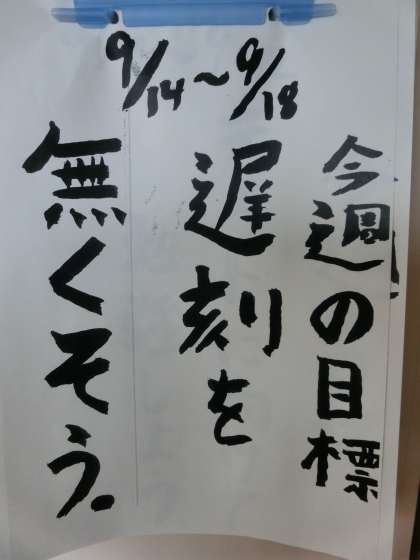 9/14〜9/18
今週の目標
遅刻を
無くそう。